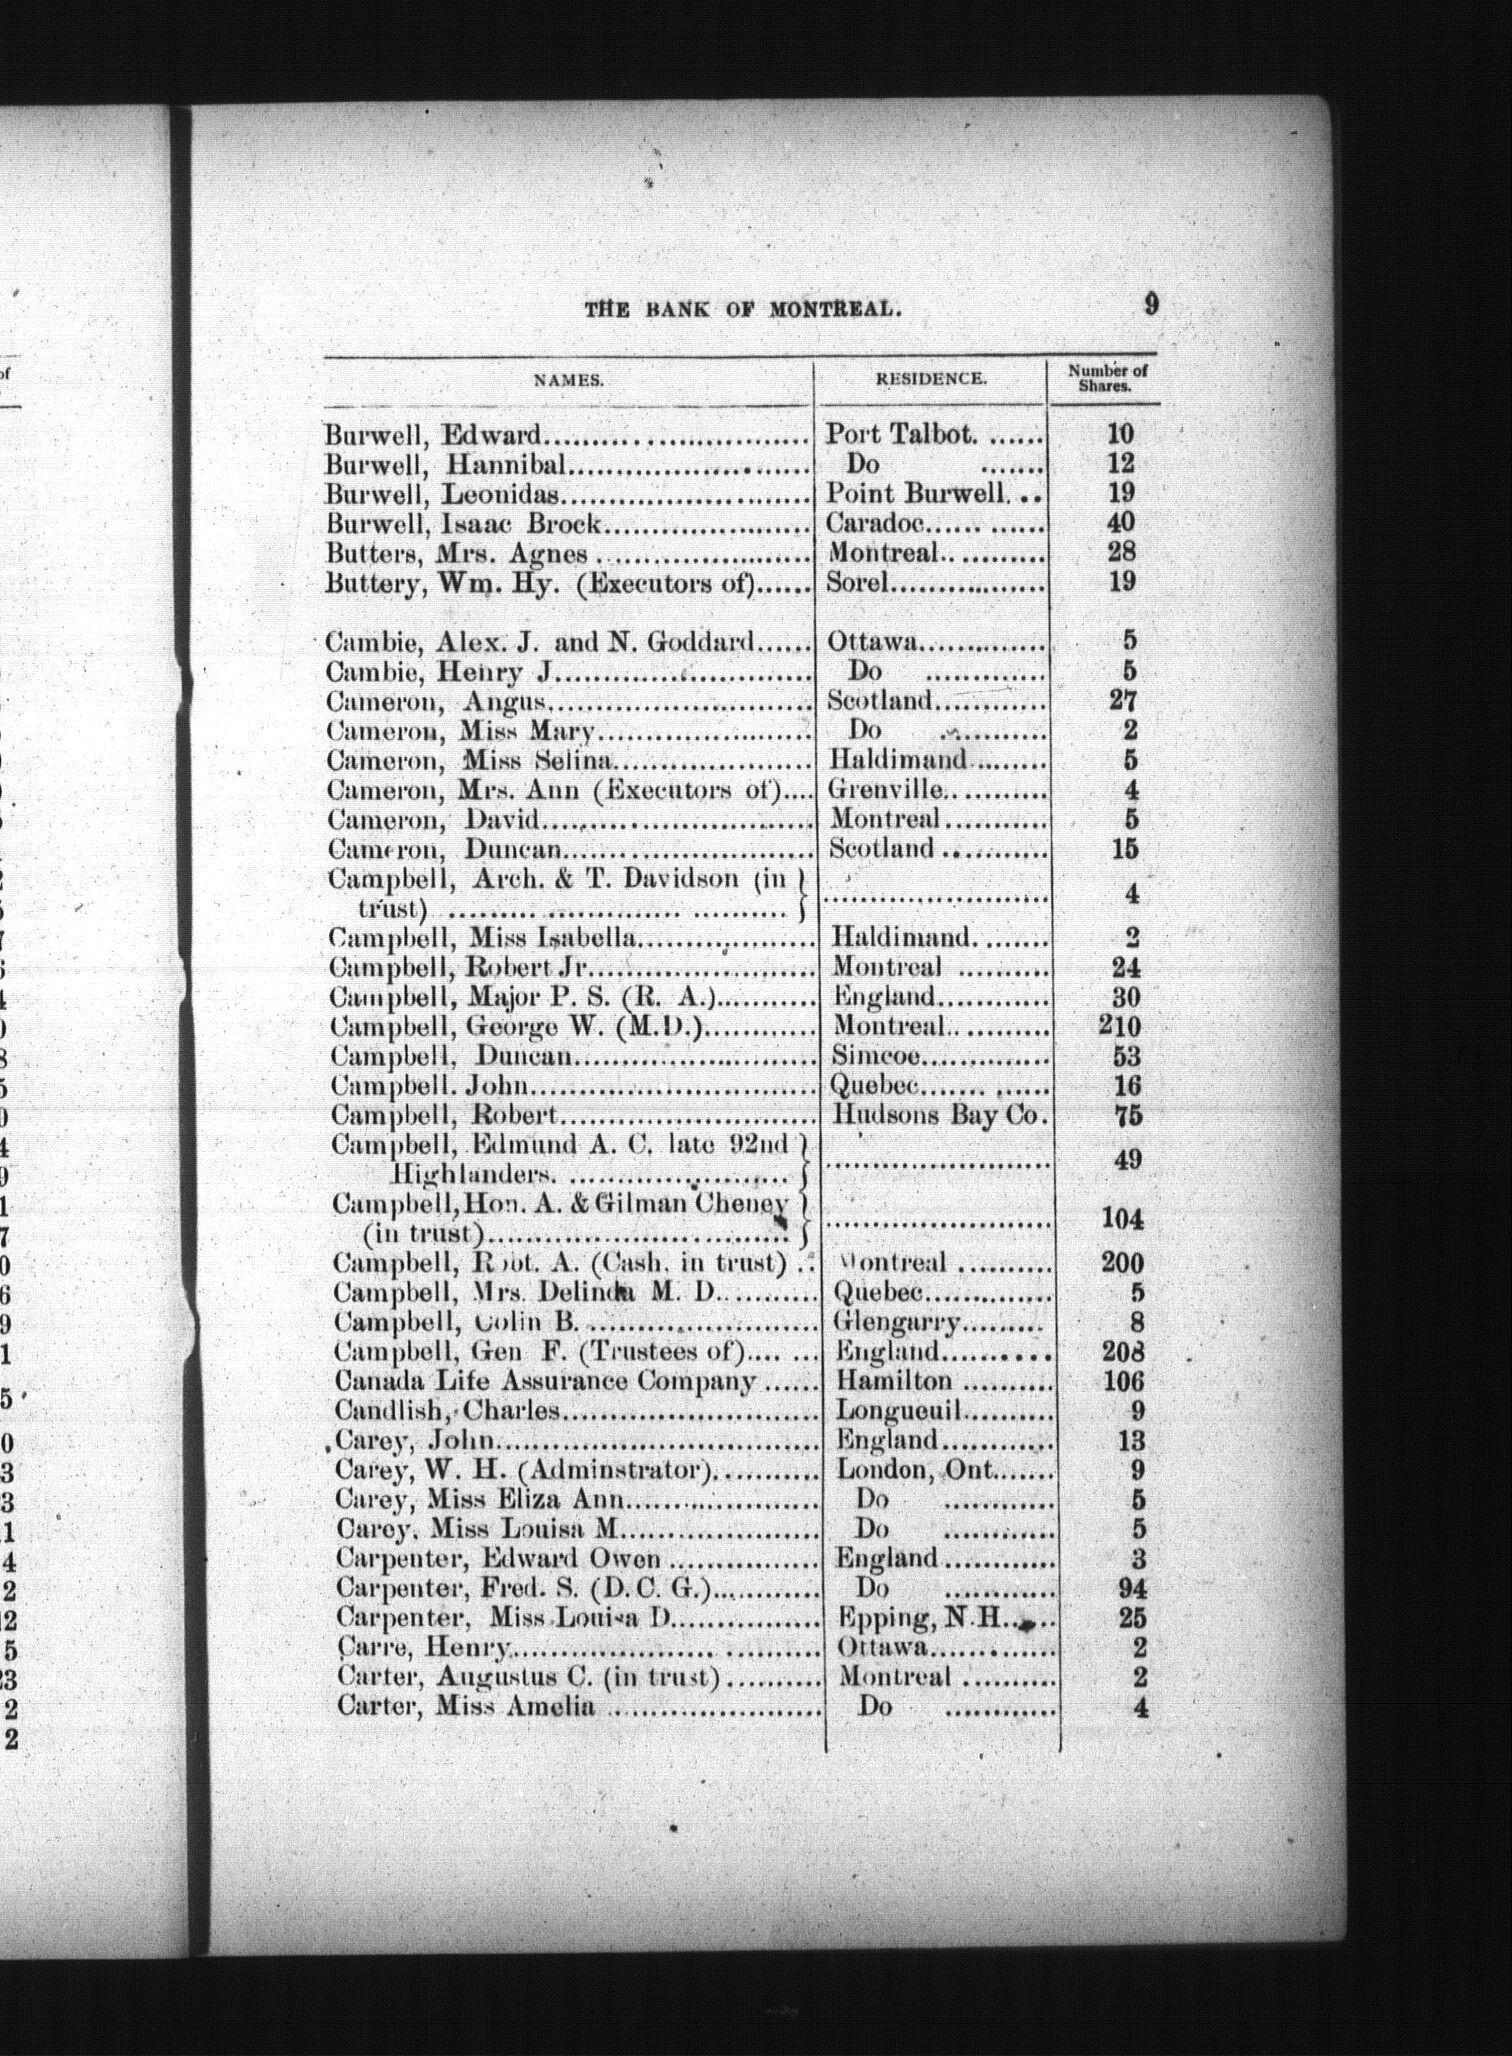 THE BANK OF MONTREAL. 9
NAMES. RESIDENCE. Number of Shares.
Burwell, Edward........................... Port Talbot. ...... 10
Burwell, Hannibal......................... Do ....... 12
Burwell, Leonidas......................... Point Burwell. .. 19
Burwell, Isaac Brock..................... Caradoc...... ...... 40
Butters, Mrs. Agnes ...................... Montreal.. ......... 28
Buttery, Wm. Hy. (Executors of)...... Sorel................ 19
Cambie, Alex. J. and N. Goddard...... Ottawa............. 5
Cambie, Henry J.......................... Do ............ 5
Cameron, Angus........................... Scotland............ 27
Cameron, Miss Mary...................... Do ........... 2
Cameron, Miss Selina.................... Haldimand........ 5
Cameron, Mrs. Ann (Executors of).... Grenville.. ......... 4
Cameron, David............................ Montreal........... 5
Cameron, Duncan.......................... Scotland ........... 15
Campbell, Arch. & T. Davidson (in
trust) ......... .............. .......... ....................... 4
Campbell, Miss Isabella.................. Haldimand. ....... 2
Campbell, Robert Jr....................... Montreal .......... 24
Campbell, Major P. S. (R. A.)........... England............ 30
Campbell, George W. (M.D.)............ Montreal.. ......... 210
Campbell, Duncan......................... Simcoe.............. 53
Campbell. John............................. Quebec....... ...... 16
Campbell, Robert.......................... Hudsons Bay Co. 75
Campbell, Edmund A. C. late 92nd
Highlanders. ....................... ....................... 49
Campbell, Hon. A. & Gilman Cheney
(in trust)............................... ....................... 104
Campbell, Robt. A. (Cash. in trust) .. Montreal .......... 200
Campbell, Mrs. Delinda M. D.......... Quebec............. 5
Campbell, Colin B. ....................... Glengarry......... 8
Campbell, Gen F. (Trustees of).... ... England........... 208
Canada Life Assurance Company ...... Hamilton .......... 106
Candlish, Charles.......................... Longueuil.......... 9
Carey, John................................. England............ 13
Carey, W. H. (Adminstrator)........... London, Ont....... 9
Carey, Miss Eliza Ann.................... Do ............ 5
Carey, Miss Louisa M..................... Do ............ 5
Carpenter, Edward Owen ................ England............ 3
Carpenter, Fred. S. (D. C. G.)........... Do ............ 94
Carpenter, Miss Louisa D................ Epping, N.H...... 25
Carre, Henry..................... .......... Ottawa............. 2
Carter, Augustus C. (in trust).......... Montreal .......... 2
Carter, Miss Amelia ...................... Do ............ 4